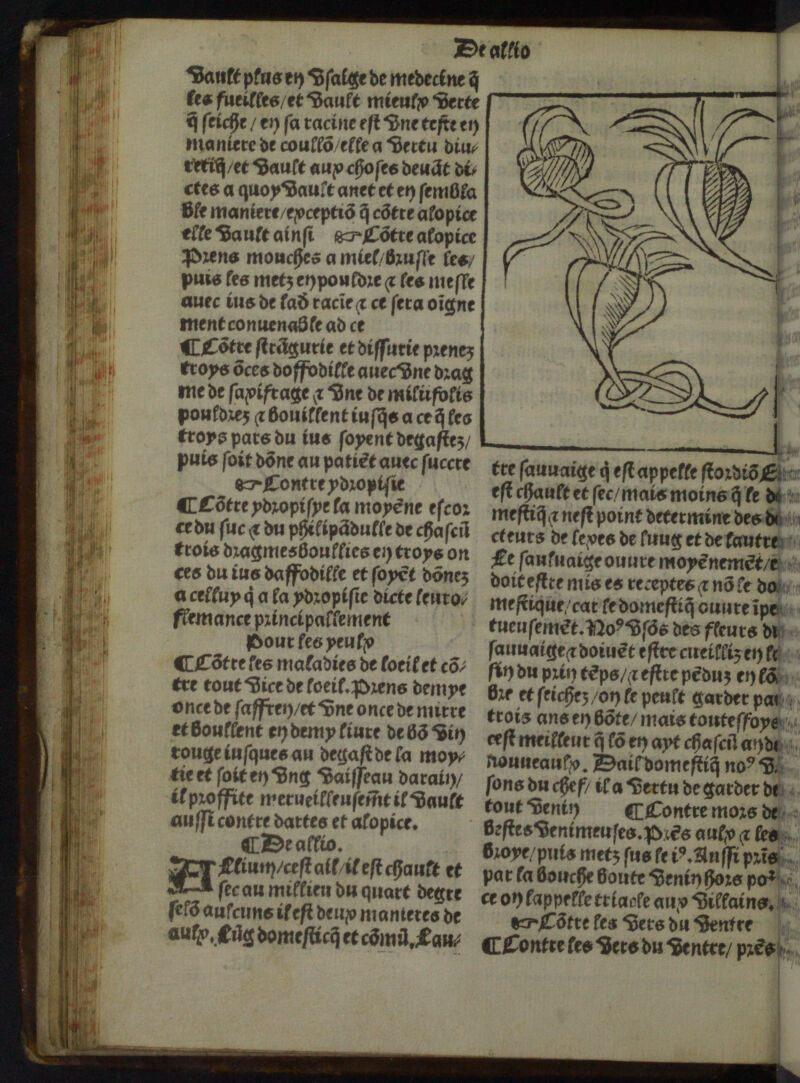 De allio
Vault plus en vsaige de medecine q̃
les fueilles/et vault mieulx verte
q̃ seiche / en sa racine est vne teste en
maniere de coullõ/elle a vertu diu⸗
retiq̃/et vault aux choses deuãt di⸗
ctes a quoy vault anet et en sembla
ble maniere/exceptiõ q̃ cõtre alopice
elle vault ainsi ☞ Cõtre alopice
Prens mouches a miel/brusle les/
puis les metz en pouldre ⁊ les mesle
auec ius de lad racie ⁊ ce sera oīgne
ment conuenable ad ce
¶ Cõtre strãgurie et dissurie prenez
troys õces doffodille auec vne drag
me de saxifrage ⁊ vne de milifolis
pouldrez ⁊ bouillent iusq̃s a ce q̃ les
troys pars du ius soyent degastez/
puis soit dõne au patiẽt auec succre
☞ Contre ydropisie
¶ Cõtre ydropisye la moyẽne escor
ce du suc ⁊ du philipãdulle de chascũ
trois dragmes boullies en troys on
ces du ius daffodille et soyẽt dõnez
a celluy q̃ a la ydropisie dicte leuro⸗
flemance principallement
Pour les yeulx
¶ Cõtre les maladies de loeil et cõ⸗
tre tout vice de loeil. Prens demye
once de saffren/et vne once de mirre
et boullent en demy liure de bõ vin
rouge iusques au degast de la moy⸗
tie et soit en vng vaisseau darain/
il proffite merueilleusem̃t il vault
aussi contre dartes et alopice.
¶ De allio.
ALlium/cest ail/il est chault et
sec au millieu du quart degre
selõ aulcuns il est deux manieres de
aulx. Lũg domesticq̃ et cõmũ, Lau⸗
tre sauuaige q̃ est appelle stordiõ
est chault et sec/mais moins q̃ le
mestiq̃ ⁊ nest point determine des
cteurs de lexes de luug et de lautre
Le sauluaige ouure moyẽnemẽt/
doit estre mis es receptes ⁊ nõ le do
mestique/car le domestiq̃ ouure ĩpe
tueusemẽt. Noꝰ vsõs des fleurs
sauuaige ⁊ doiuẽt estre cueilliz en
fin du prin tẽps/⁊ estre pẽduz en lõ
bre et seichez /on le peult garder par
trois ans en bõte/ mais toutesfoys
cest meilleur q̃ lõ en ayt chascũ
nouueaulx. Dail domestiq̃ noꝰ
sons du chef/ il a vertu de garder
tout venin ¶ Contre mors de
bestes venimeuses. Prẽs aulx ⁊ les
broye/puis metz sus le iꝰ. Aussi
par la bouche boute venin hors
ce on lappelle triacle aux villains.
☞ Cõtre les vers du ventre
¶ Contre les vers du ventre/ prẽs